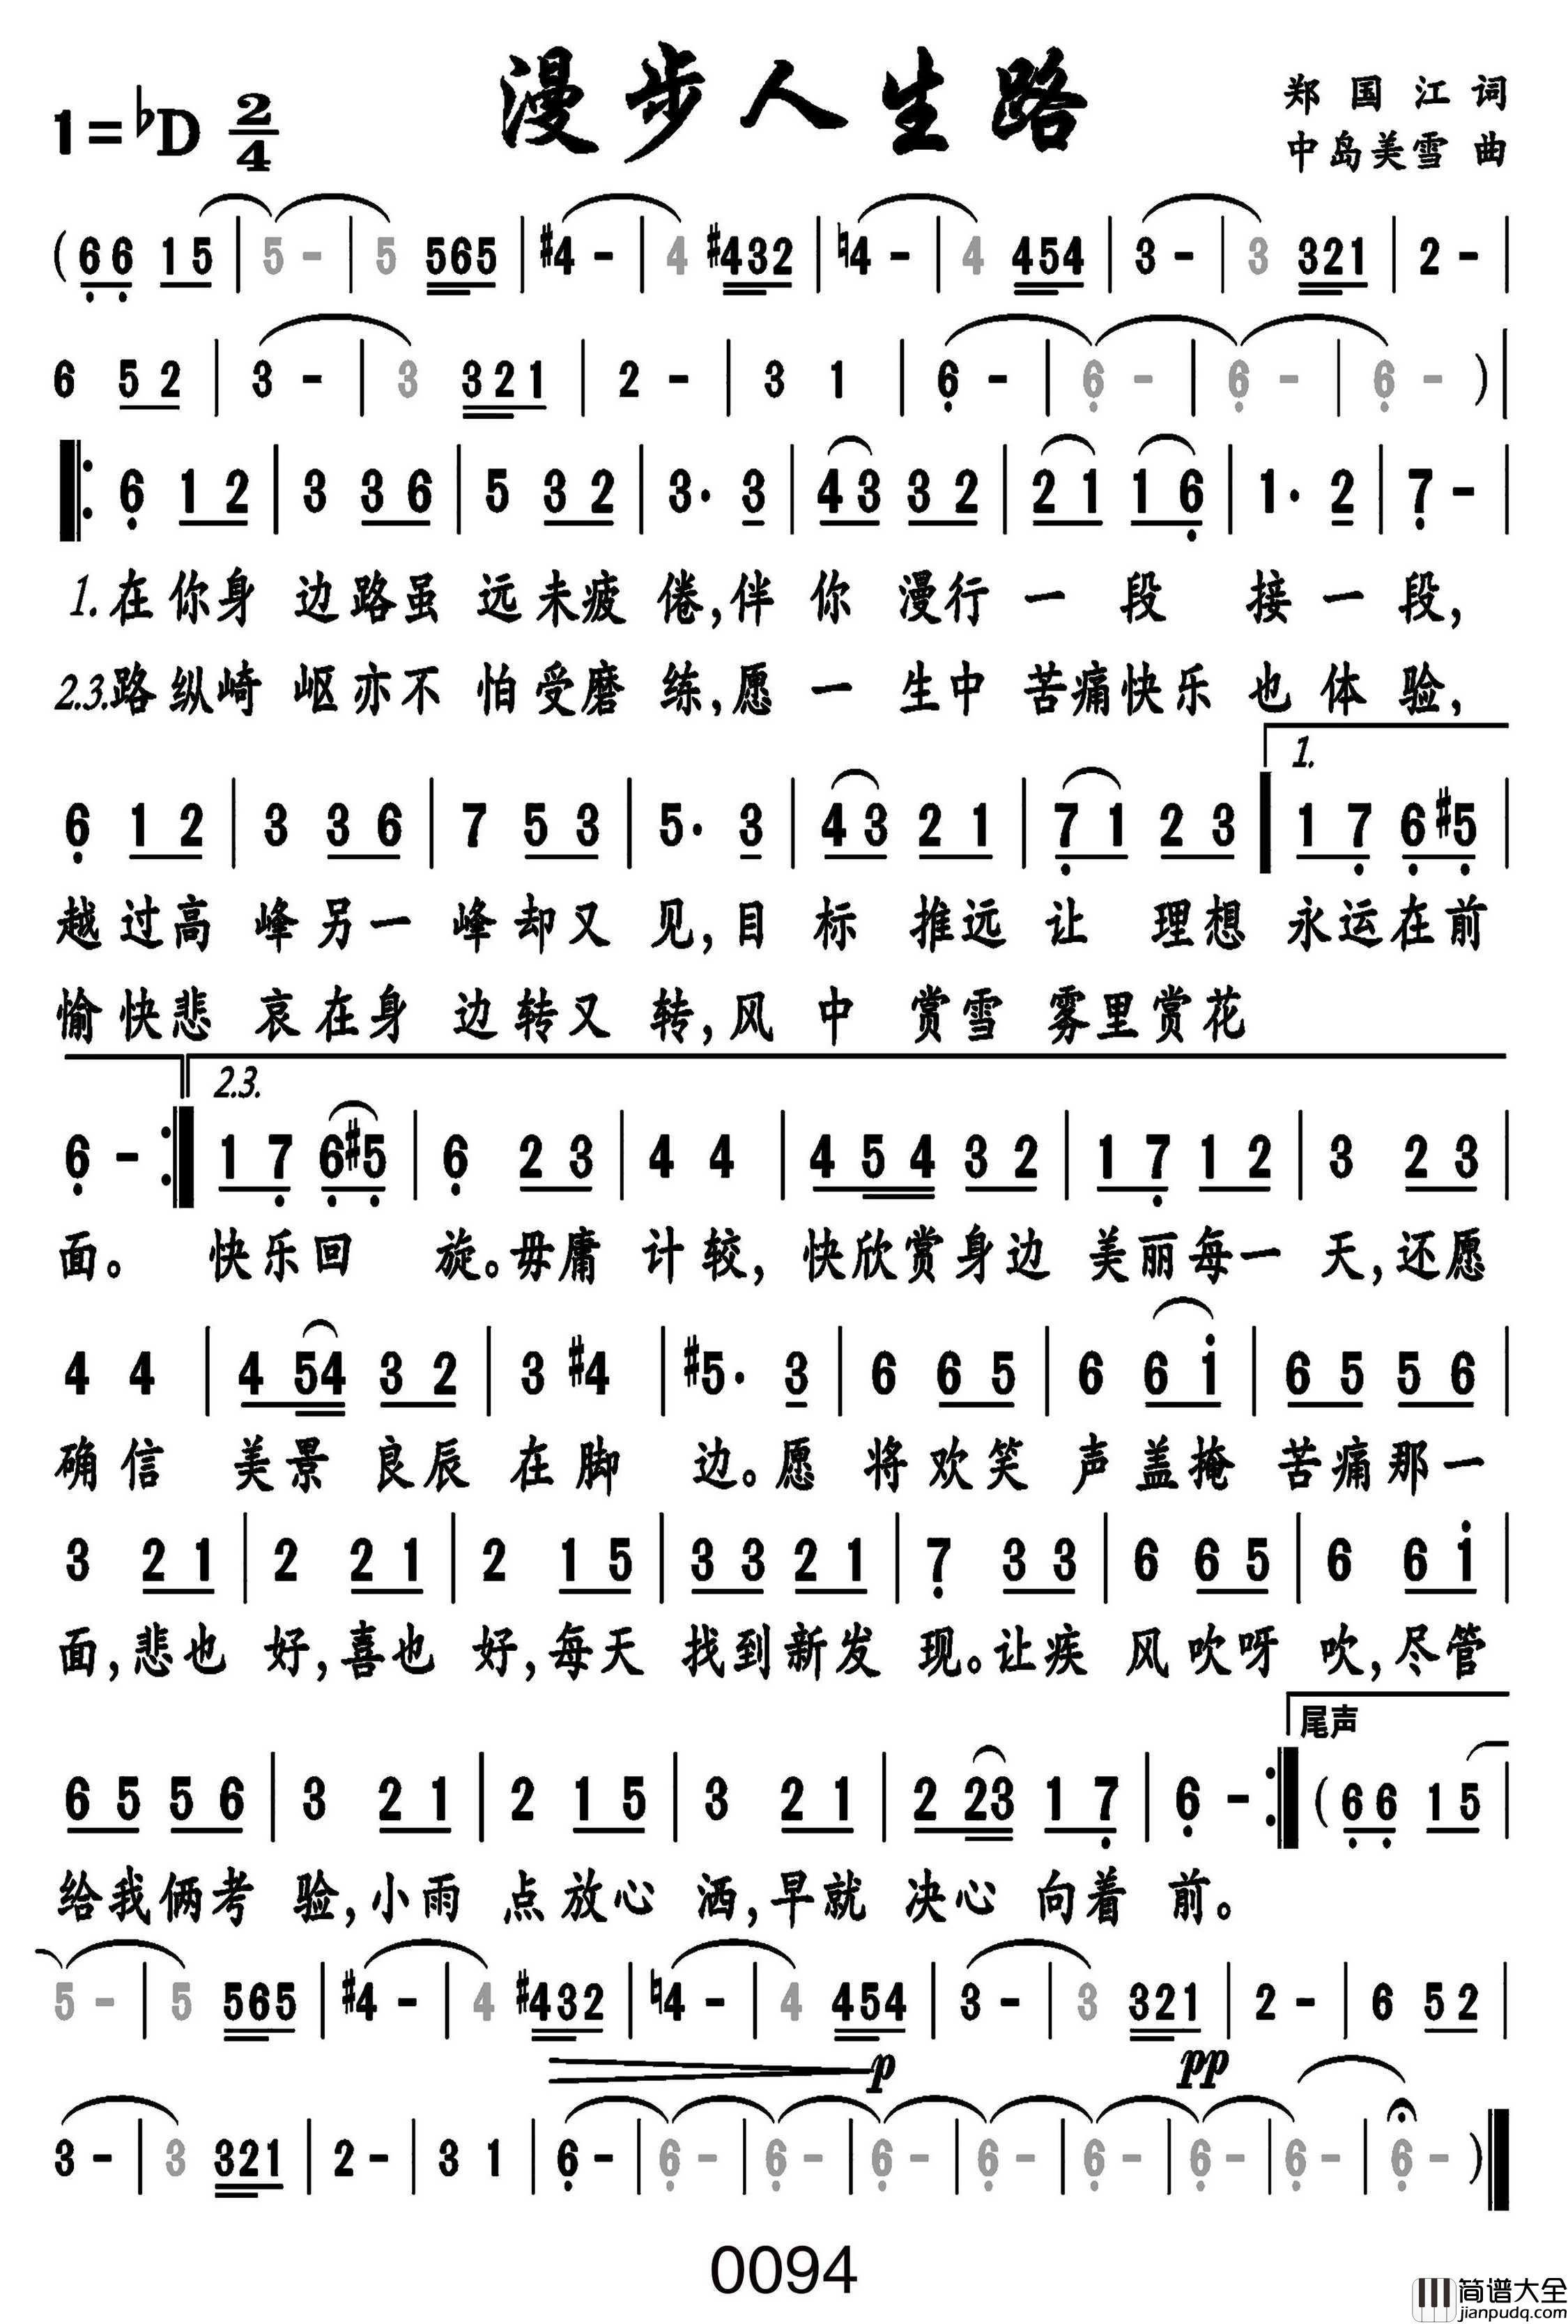 漫步人生路
1=♭D 2/4
郑国江 词
中岛美雪 曲
(6̣6̣ 15 | 5 - | 5 565 | #4 - | 4 #432 | ♮4 - | 4 454 | 3 - | 3 321 | 2 - |
6 52 | 3 - | 3 321 | 2 - | 3 1 | 6̣ - | 6̣ - | 6̣ - | 6̣ - )|
‖: 6̣ 12 | 3 36 | 5 32 | 3· 3 | 43 32 | 21 16̣ | 1· 2 | 7̣ - |
1.在你身 边路虽 远未疲 倦,伴 你 漫行 一 段 接 一 段,
2.3.路纵崎 岖亦不 怕受磨 练,愿 一 生中 苦痛快乐 也 体 验,
1.
6̣ 12 | 3 36 | 7 53 | 5· 3 | 43 21 | 7̣1 23 | 17̣ 6̣#5̣ |
越过高 峰另一 峰却又 见,目 标 推远 让 理想 永运在前
愉快悲 哀在身 边转又 转,风 中 赏雪 雾里赏花
2.3.
6̣ - :‖ 17̣ 6̣#5̣ | 6̣ 23 | 4 4 | 454 32 | 17̣ 12 | 3 23 |
面。 快乐回 旋。毋庸 计较, 快欣赏身边 美丽每一 天,还愿
4 4 | 454 32 | 3 #4 | #5· 3 | 6 65 | 6 6i̇ | 65 56 |
确信 美景良辰 在脚 边。愿 将欢笑 声盖掩 苦痛那一
3 21 | 2 21 | 2 15 | 33 21 | 7̣ 33 | 6 65 | 6 6i̇ |
面,悲也 好,喜也 好,每天 找到新发 现。让疾 风吹呀 吹,尽管
尾声
65 56 | 3 21 | 2 15 | 3 21 | 223 17̣ | 6̣ - :‖ (6̣6̣ 15 |
给我俩考 验,小雨 点放心 洒,早就 决心 向着 前。
5 - | 5 565 | #4 - | 4 #432 | ♮4 - | 4 454 | 3 - | 3 321 | 2 - | 6 52 |
p pp
3 - | 3 321 | 2 - | 3 1 | 6̣ - | 6̣ - | 6̣ - | 6̣ - | 6̣ - | 6̣ - | 6̣ - | 6̣ - | 6̣ - )‖
0094
简谱大全
jianpudq.com